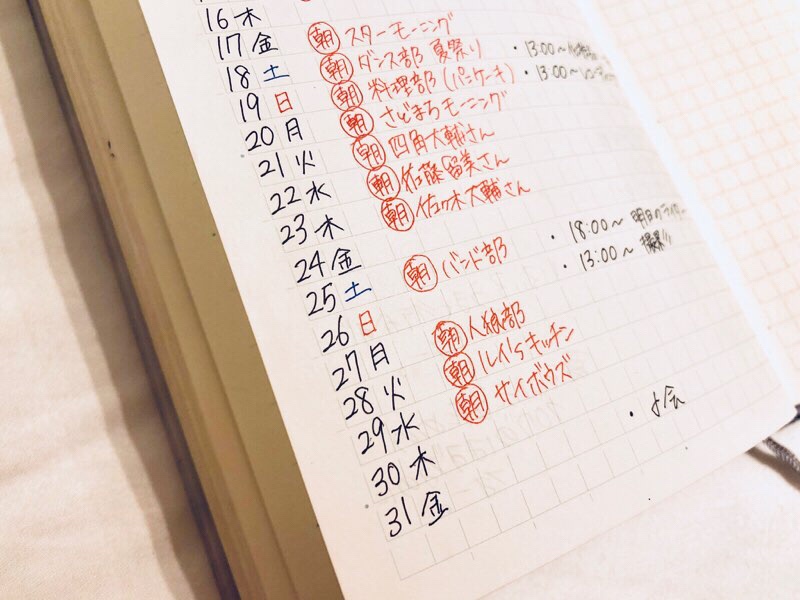 16 木
17 金 朝 スターモーニング
18 土 朝 ダンス部 夏祭り ・13:00〜
19 日 朝 料理部 (パンケーキ) ・13:00〜
20 月 朝 さどまちモーニング
21 火 朝 四角大輔さん
22 水 朝 佐藤留美さん
23 木 朝 佐々木大輔さん
24 金
25 土 朝 バンド部 ・18:00〜 明日のライター
26 日 ・13:00〜 撮影
27 月 朝 人狼部
28 火 朝 ルイ's キッチン
29 水 朝 サイボウズ
30 木
31 金